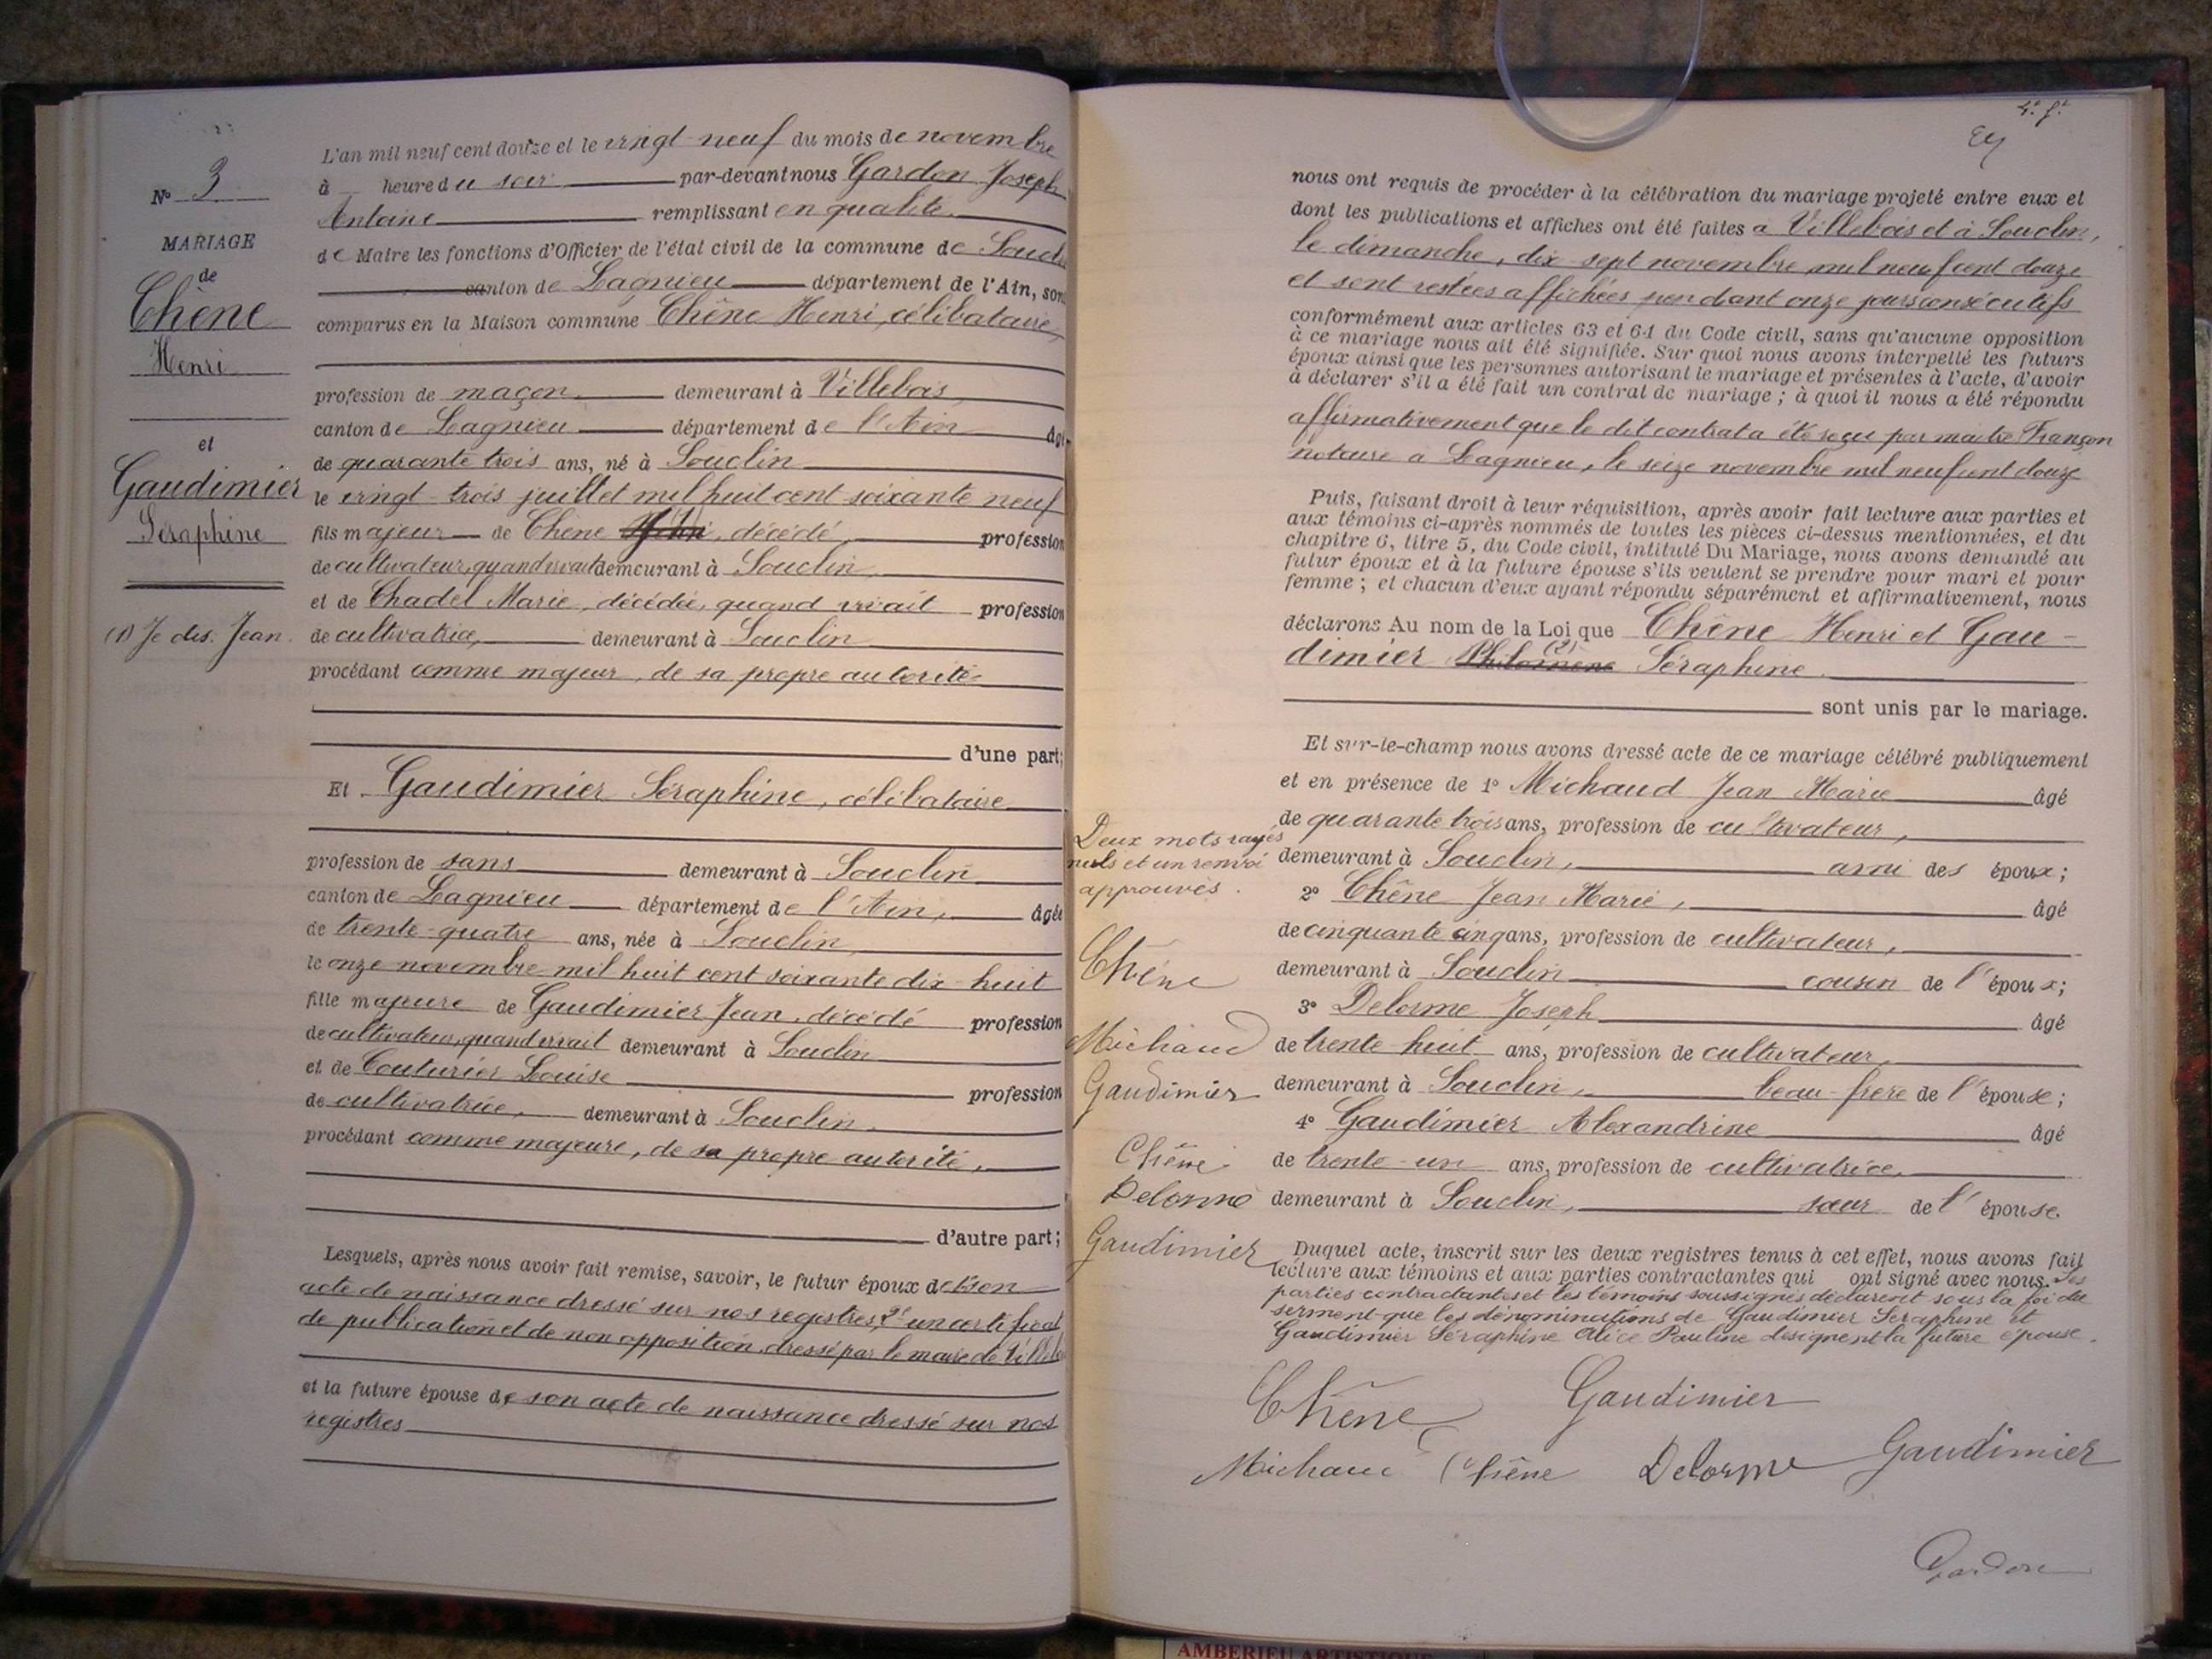 N° 3
MARIAGE
de
Chêne
Henri
et
Gaudimier
Séraphine
(1) Je dis: Jean.
L'an mil neuf cent douze et le vingt-neuf du mois de novembre
à heure du soir par-devant nous Gardon Joseph
Antoine remplissant en qualité
de Maire les fonctions d'Officier de l'état civil de la commune de Souclin
canton de Lagnieu département de l'Ain, sont
comparus en la Maison commune Chêne Henri, célibataire,
profession de maçon, demeurant à Villebois,
canton de Lagnieu département de l'Ain âgé
de quarante trois ans, né à Souclin
le vingt-trois juillet mil huit cent soixante neuf
fils majeur de Chêne, décédé, profession
de cultivateur, quand vivait demeurant à Souclin,
et de Chadel Marie, décédée, quand vivait profession
de cultivatrice, demeurant à Souclin
procédant comme majeur, de sa propre autorité
d'une part;
Et Gaudimier Séraphine, célibataire
profession de sans demeurant à Souclin
canton de Lagnieu département de l'Ain, âgée
de trente-quatre ans, née à Souclin,
le onze novembre mil huit cent soixante dix-huit
fille majeure de Gaudimier Jean, décédé profession
de cultivateur, quand vivait demeurant à Souclin
et de Couturier Louise profession
de cultivatrice, demeurant à Souclin,
procédant comme majeure, de sa propre autorité,
d'autre part;
Lesquels, après nous avoir fait remise, savoir, le futur époux de 1° son
acte de naissance dressé sur nos registres, 2° un certificat
de publication et de non opposition, dressé par le maire de Villebois
et la future épouse de son acte de naissance dressé sur nos
registres
nous ont requis de procéder à la célébration du mariage projeté entre eux et
dont les publications et affiches ont été faites a Villebois et à Souclin,
le dimanche, dix-sept novembre mil neuf cent douze
et sont restées affichées pendant onze jours consécutifs
conformément aux articles 63 et 64 du Code civil, sans qu'aucune opposition
à ce mariage nous ait été signifiée. Sur quoi nous avons interpellé les futurs
époux ainsi que les personnes autorisant le mariage et présentes à l'acte, d'avoir
à déclarer s'il a été fait un contrat de mariage; à quoi il nous a été répondu
affirmativement que le dit contrat a été reçu par maître Françon
notaire a Lagnieu, le seize novembre mil neuf cent douze
Puis, faisant droit à leur réquisition, après avoir fait lecture aux parties et
aux témoins ci-après nommés de toutes les pièces ci-dessus mentionnées, et du
chapitre 6, titre 5, du Code civil, intitulé Du Mariage, nous avons demandé au
futur époux et à la future épouse s'ils veulent se prendre pour mari et pour
femme; et chacun d'eux ayant répondu séparément et affirmativement, nous
déclarons Au nom de la Loi que Chêne Henri et Gau-
dimier Philomène (2) Séraphine
sont unis par le mariage.
Et sur-le-champ nous avons dressé acte de ce mariage célébré publiquement
et en présence de 1° Michaud Jean Marie âgé
de quarante trois ans, profession de cultivateur,
demeurant à Souclin, ami des époux;
2° Chêne Jean Marie, âgé
de cinquante cinq ans, profession de cultivateur,
demeurant à Souclin cousin de l'époux;
3° Delorme Joseph âgé
de trente-huit ans, profession de cultivateur,
demeurant à Souclin, beau-frère de l'épouse;
4° Gaudimier Alexandrine âgé
de trente-un ans, profession de cultivatrice,
demeurant à Souclin, sœur de l'épouse.
Duquel acte, inscrit sur les deux registres tenus à cet effet, nous avons fait
lecture aux témoins et aux parties contractantes qui ont signé avec nous. Les
parties contractantes et les témoins soussignés déclarent sous la foi du
serment que les dénominations de Gaudimier Séraphine et
Gaudimier Séraphine Alice Pauline désignent la future épouse.
Deux mots rayés
nuls et un renvoi
approuvés.
Chêne
Michaud
Gaudimier
Chêne
Delorme
Gaudimier
Chêne Gaudimier
Michaud Chêne Delorme Gaudimier
Gardon
AMBERIEU ARTISTIQUE